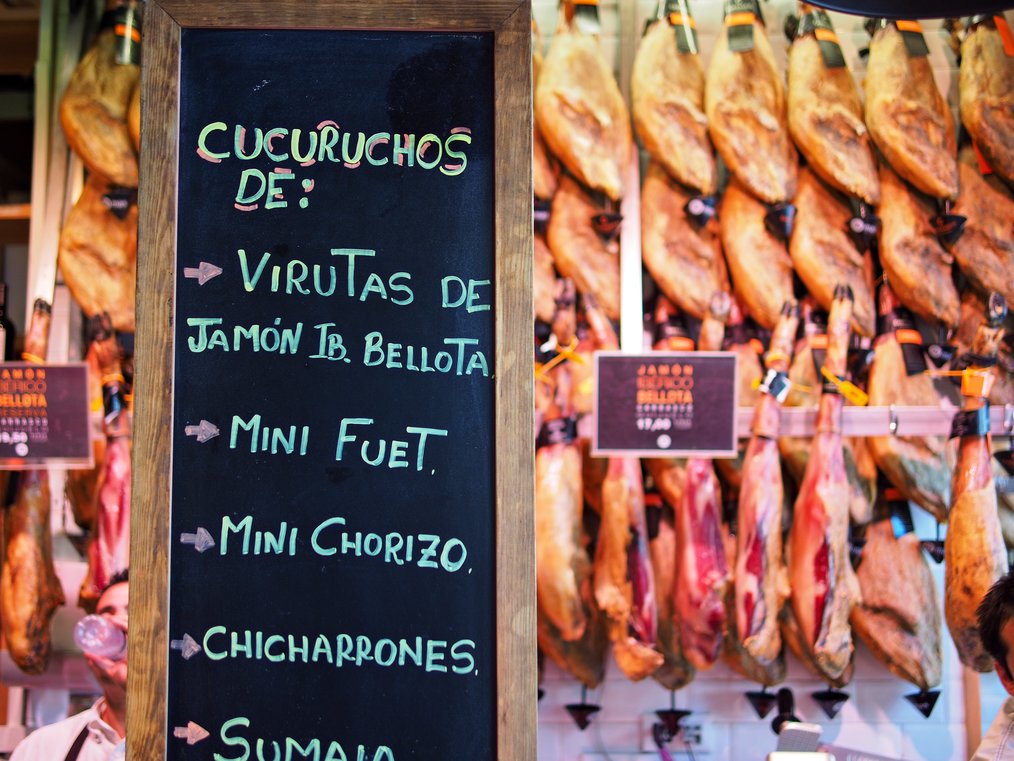 CUCURUCHOS
DE:
VIRUTAS DE
JAMÓN IB. BELLOTA.
MINI FUET.
MINI CHORIZO.
CHICHARRONES.
SUMAIA
JAMÓN
IBÉRICO
BELLOTA
RESERVA
JAMÓN
IBÉRICO
BELLOTA
17,00